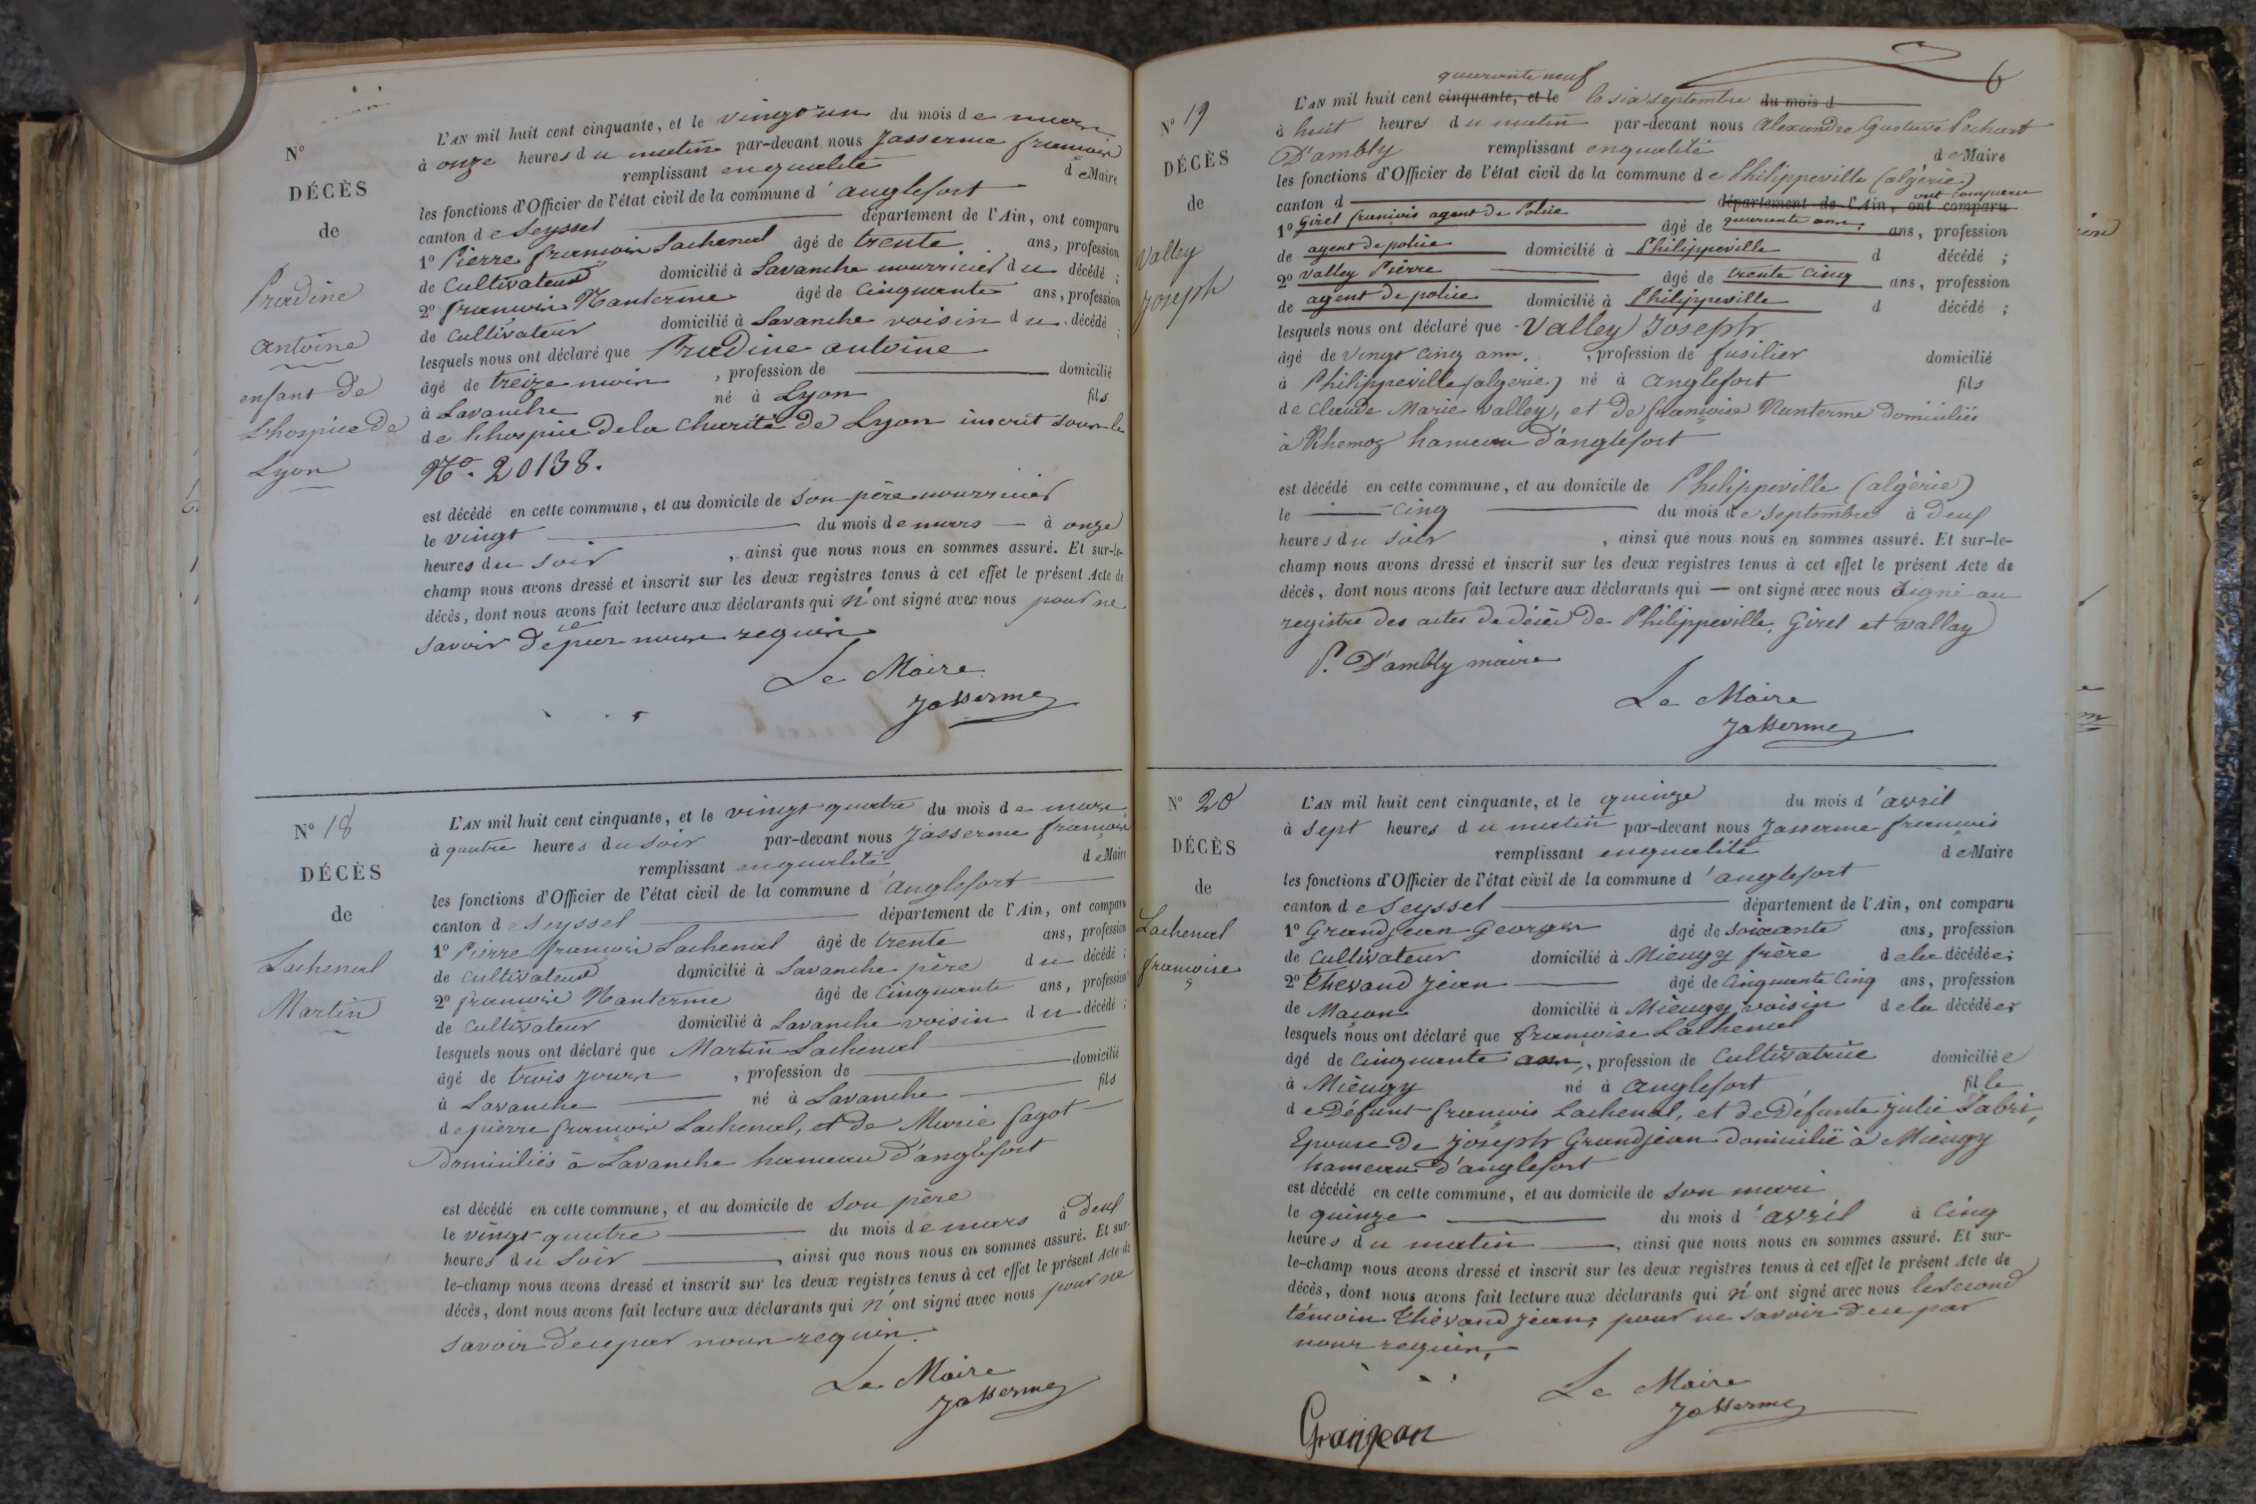 N°
DÉCÈS
de
Pradine
Antoine
enfant de
L'hospice de
Lyon
L'AN mil huit cent cinquante, et le vingt un du mois de mars
à onze heures du matin par-devant nous Jasserme françois
remplissant en qualité de Maire
les fonctions d'Officier de l'état civil de la commune d'anglefort
canton de Seyssel département de l'Ain, ont comparu
1° Pierre françois Lachenal âgé de trente ans, profession
de Cultivateur domicilié à Lavanche nourricier du décédé ;
2° françois Nanterme âgé de Cinquante ans, profession
de Cultivateur domicilié à Lavanche voisin du décédé ;
lesquels nous ont déclaré que Pradine antoine
âgé de treize mois , profession de domicilié
à Lavanche né à Lyon fils
de l'hospice de la Charité de Lyon inscrit sous le
N°. 20138.
est décédé en cette commune, et au domicile de son père nourricier
le vingt du mois de mars à onze
heures du soir , ainsi que nous nous en sommes assuré. Et sur-le-
champ nous avons dressé et inscrit sur les deux registres tenus à cet effet le présent Acte de
décès, dont nous avons fait lecture aux déclarants qui n'ont signé avec nous pour ne
savoir de ce par nous requis
Le Maire
Jasserme
N° 18
DÉCÈS
de
Lachenal
Martin
L'AN mil huit cent cinquante, et le vingt quatre du mois de mars
à quatre heures du soir par-devant nous Jasserme françois
remplissant en qualité de Maire
les fonctions d'Officier de l'état civil de la commune d'anglefort
canton de Seyssel département de l'Ain, ont comparu
1° Pierre françois Lachenal âgé de trente ans, profession
de Cultivateur domicilié à Lavanche père du décédé ;
2° françois Nanterme âgé de Cinquante ans, profession
de Cultivateur domicilié à Lavanche voisin du décédé ;
lesquels nous ont déclaré que Martin Lachenal
âgé de trois jours , profession de domicilié
à Lavanche né à Lavanche fils
de pierre françois Lachenal, et de Marie fagot
domiciliés à Lavanche hameau d'anglefort
est décédé en cette commune, et au domicile de son père
le vingt quatre du mois de mars à deux
heures du soir , ainsi que nous nous en sommes assuré. Et sur-
le-champ nous avons dressé et inscrit sur les deux registres tenus à cet effet le présent Acte de
décès, dont nous avons fait lecture aux déclarants qui n'ont signé avec nous pour ne
savoir de ce par nous requis.
Le Maire
Jasserme
6
N° 19
DÉCÈS
de
Valley
Joseph
quarante neuf
L'AN mil huit cent cinquante, et le le six septembre du mois d
à huit heures du matin par-devant nous Alexandre Gustave Pochart
D'ambly remplissant en qualité de Maire
les fonctions d'Officier de l'état civil de la commune de Philippeville (algérie)
canton d département de l'Ain, ont comparu ont comparu
1° Giret françois agent de Police âgé de quarante ans, ans, profession
de agent de police domicilié à Philippeville d décédé ;
2° Valley Pierre âgé de trente cinq ans, profession
de agent de police domicilié à Philippeville d décédé ;
lesquels nous ont déclaré que Valley Joseph
âgé de vingt cinq ans. , profession de fusilier domicilié
à Philippeville (algérie) né à anglefort fils
de Claude Marie Valley, et de françoise Nanterme domiciliés
à Rhemoz hameau d'anglefort
est décédé en cette commune, et au domicile de Philippeville (algérie)
le cinq du mois de septembre à deux
heures du soir , ainsi que nous nous en sommes assuré. Et sur-le-
champ nous avons dressé et inscrit sur les deux registres tenus à cet effet le présent Acte de
décès, dont nous avons fait lecture aux déclarants qui — ont signé avec nous signé au
registre des actes de décès de Philippeville, Giret et Valley
P. D'ambly maire
Le Maire
Jasserme
N° 20
DÉCÈS
de
Lachenal
françoise
L'AN mil huit cent cinquante, et le quinze du mois d'avril
à sept heures du matin par-devant nous Jasserme françois
remplissant en qualité de Maire
les fonctions d'Officier de l'état civil de la commune d'anglefort
canton de Seyssel département de l'Ain, ont comparu
1° Grandjean Georges âgé de soixante ans, profession
de Cultivateur domicilié à Mieugy frère de la décédée ;
2° Thevand jean âgé de Cinquante Cinq ans, profession
de Maçon domicilié à Mieugy voisin de la décédée ;
lesquels nous ont déclaré que françoise Lachenal
âgé de Cinquante ans, , profession de Cultivatrice domiciliée
à Miéugy né à anglefort fille
de Défunt françois Lachenal, et de Défunte julie Labri,
Epouse de joseph Grandjean domicilié à Mieugy
hameau d'anglefort
est décédé en cette commune, et au domicile de son mari
le quinze du mois d'avril à Cinq
heures du matin , ainsi que nous nous en sommes assuré. Et sur-
le-champ nous avons dressé et inscrit sur les deux registres tenus à cet effet le présent Acte de
décès, dont nous avons fait lecture aux déclarants qui n'ont signé avec nous le second
témoin Thévand jean, pour ne savoir de ce par
nous requis,
Le Maire
Jasserme
Granjean